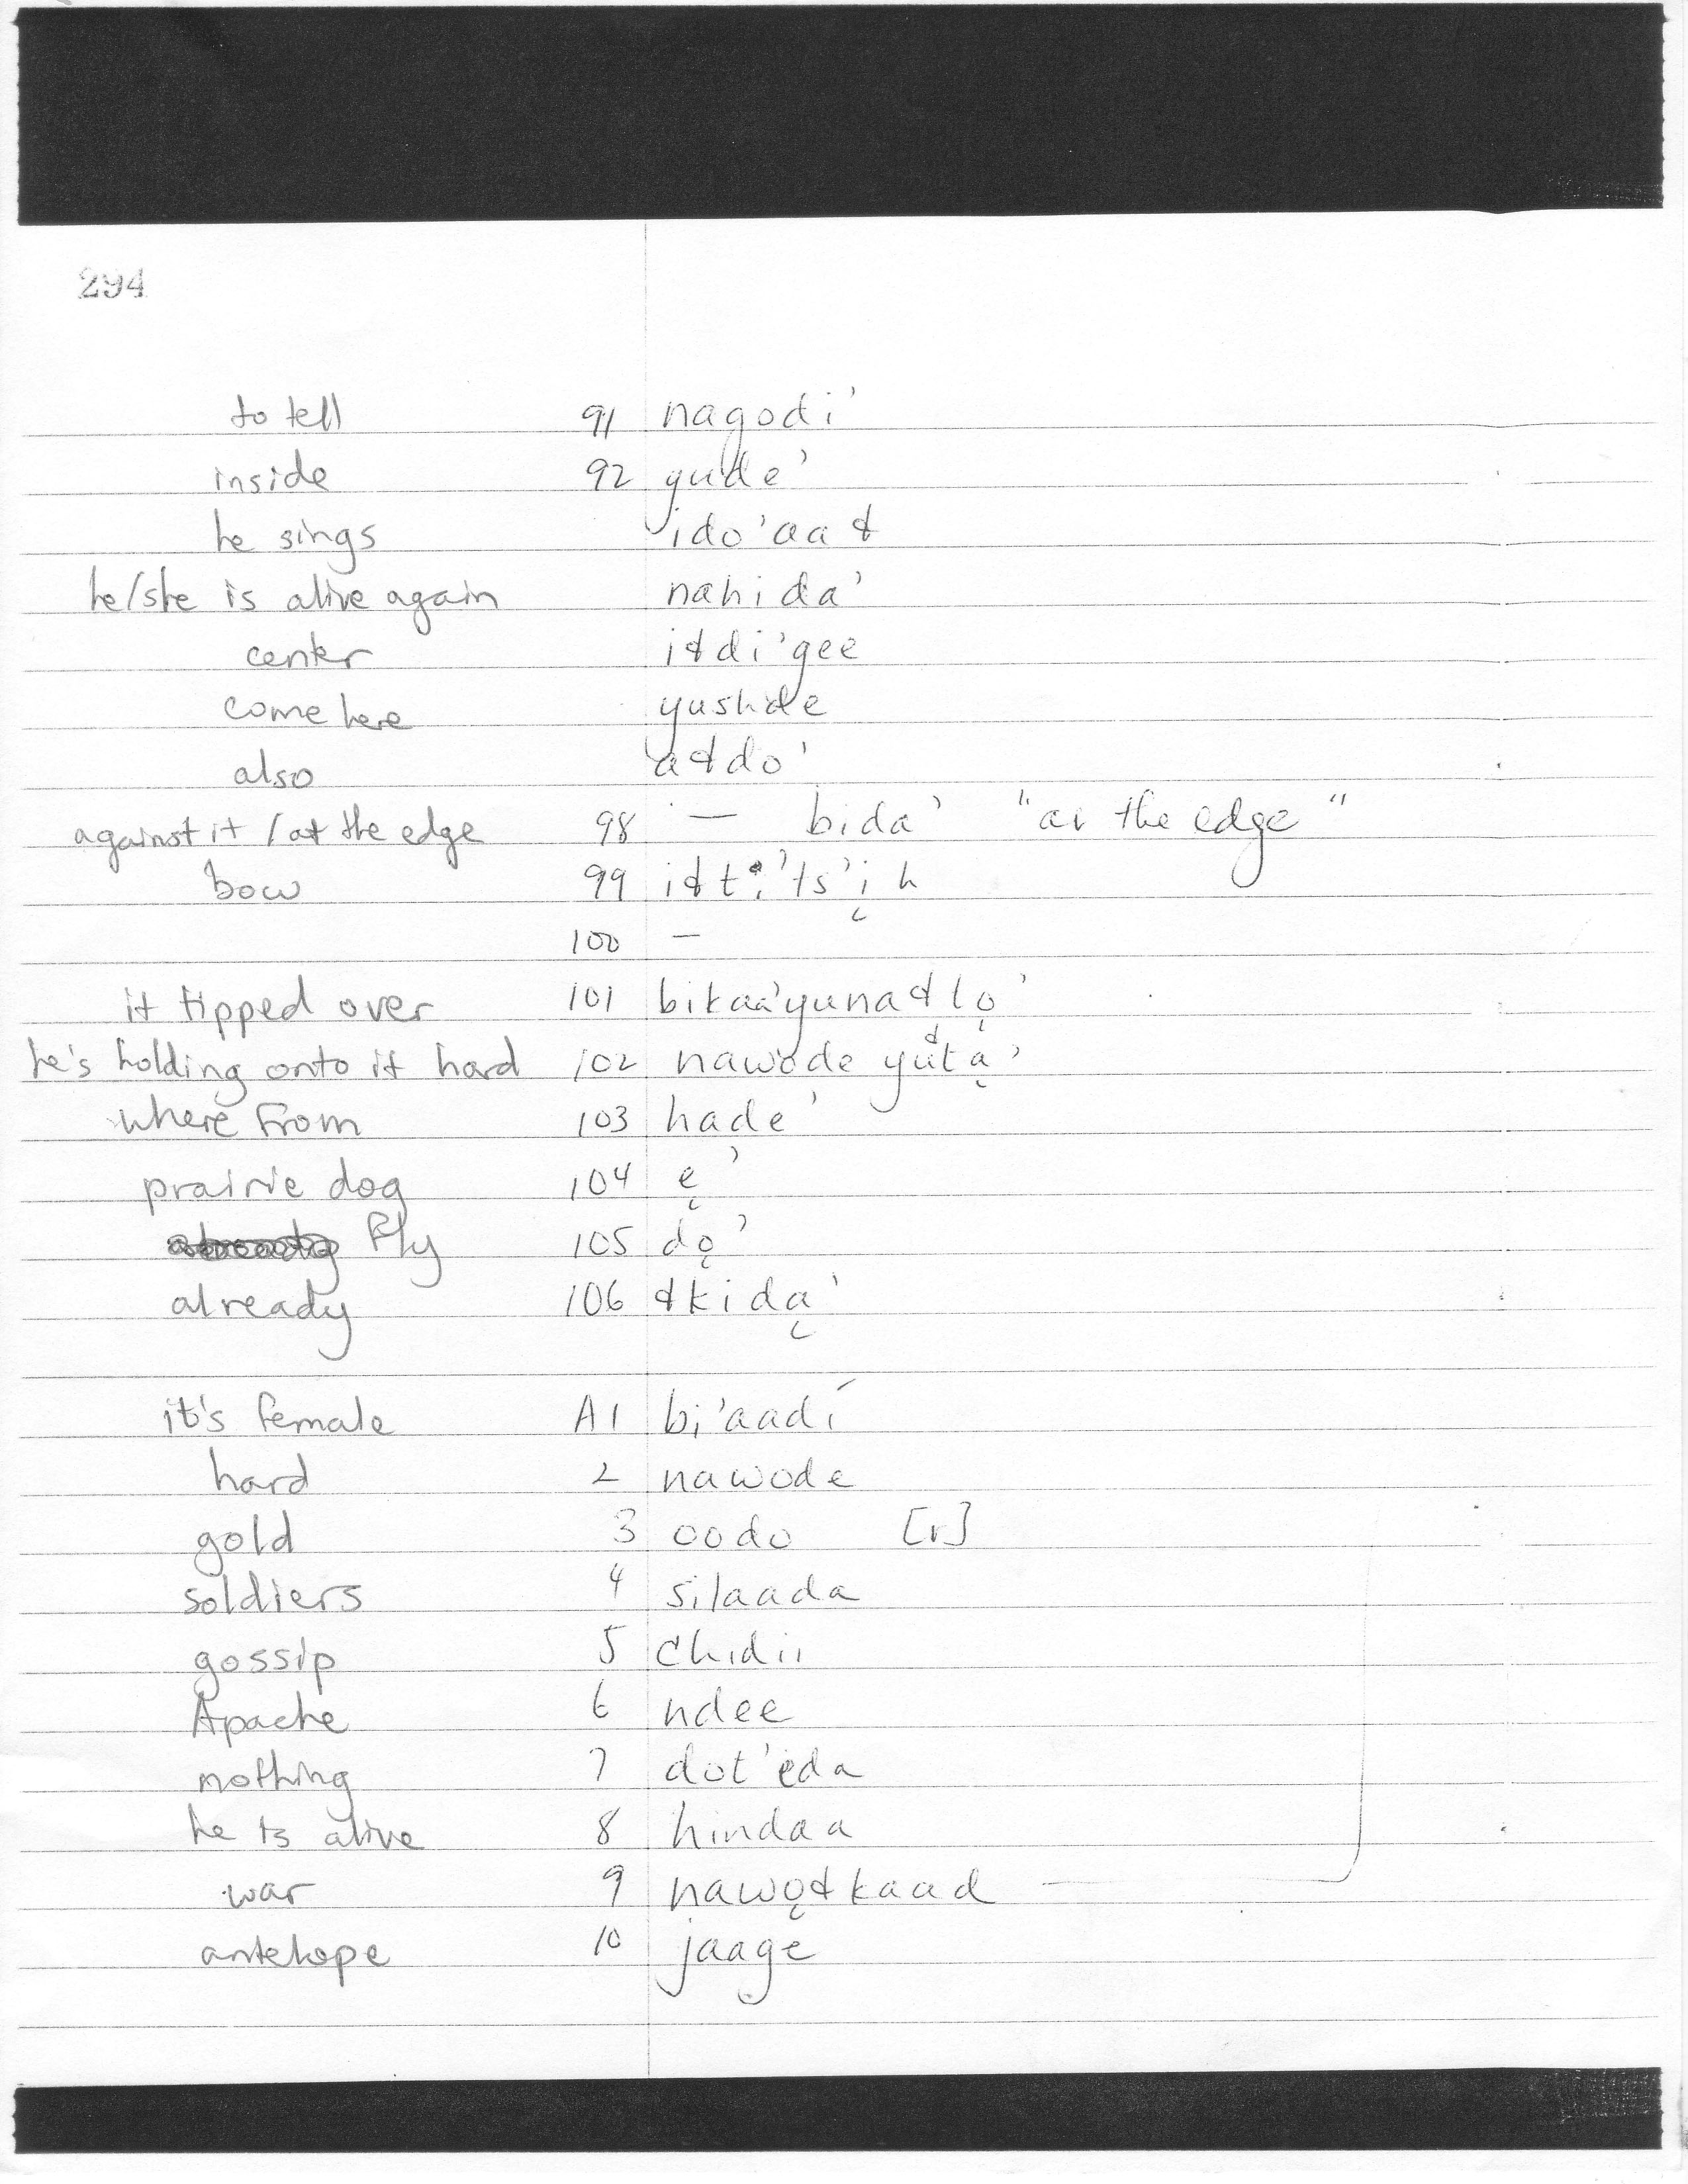 294
to tell 91 nagodi'
inside 92 yude'
he sings ido'aał
he/she is alive again nahida'
center iłdi'gee
come here yushde
also ałdo'
against it / at the edge 98 — bida' "at the edge"
bow 99 iłti'ts'į h
100 —
it tipped over 101 bikaa'yunałlǫ'
he's holding onto it hard 102 nawode yułtą'
where from 103 hade'
prairie dog 104 ę'
fly 105 dǫ'
already 106 łkidą'
it's female A1 bi'aadí
hard 2 nawode
gold 3 oodo [r]
soldiers 4 silaada
gossip 5 chidii
Apache 6 ndee
nothing 7 dot'eda
he is alive 8 hindaa
war 9 nawǫłkaad
antelope 10 jaage